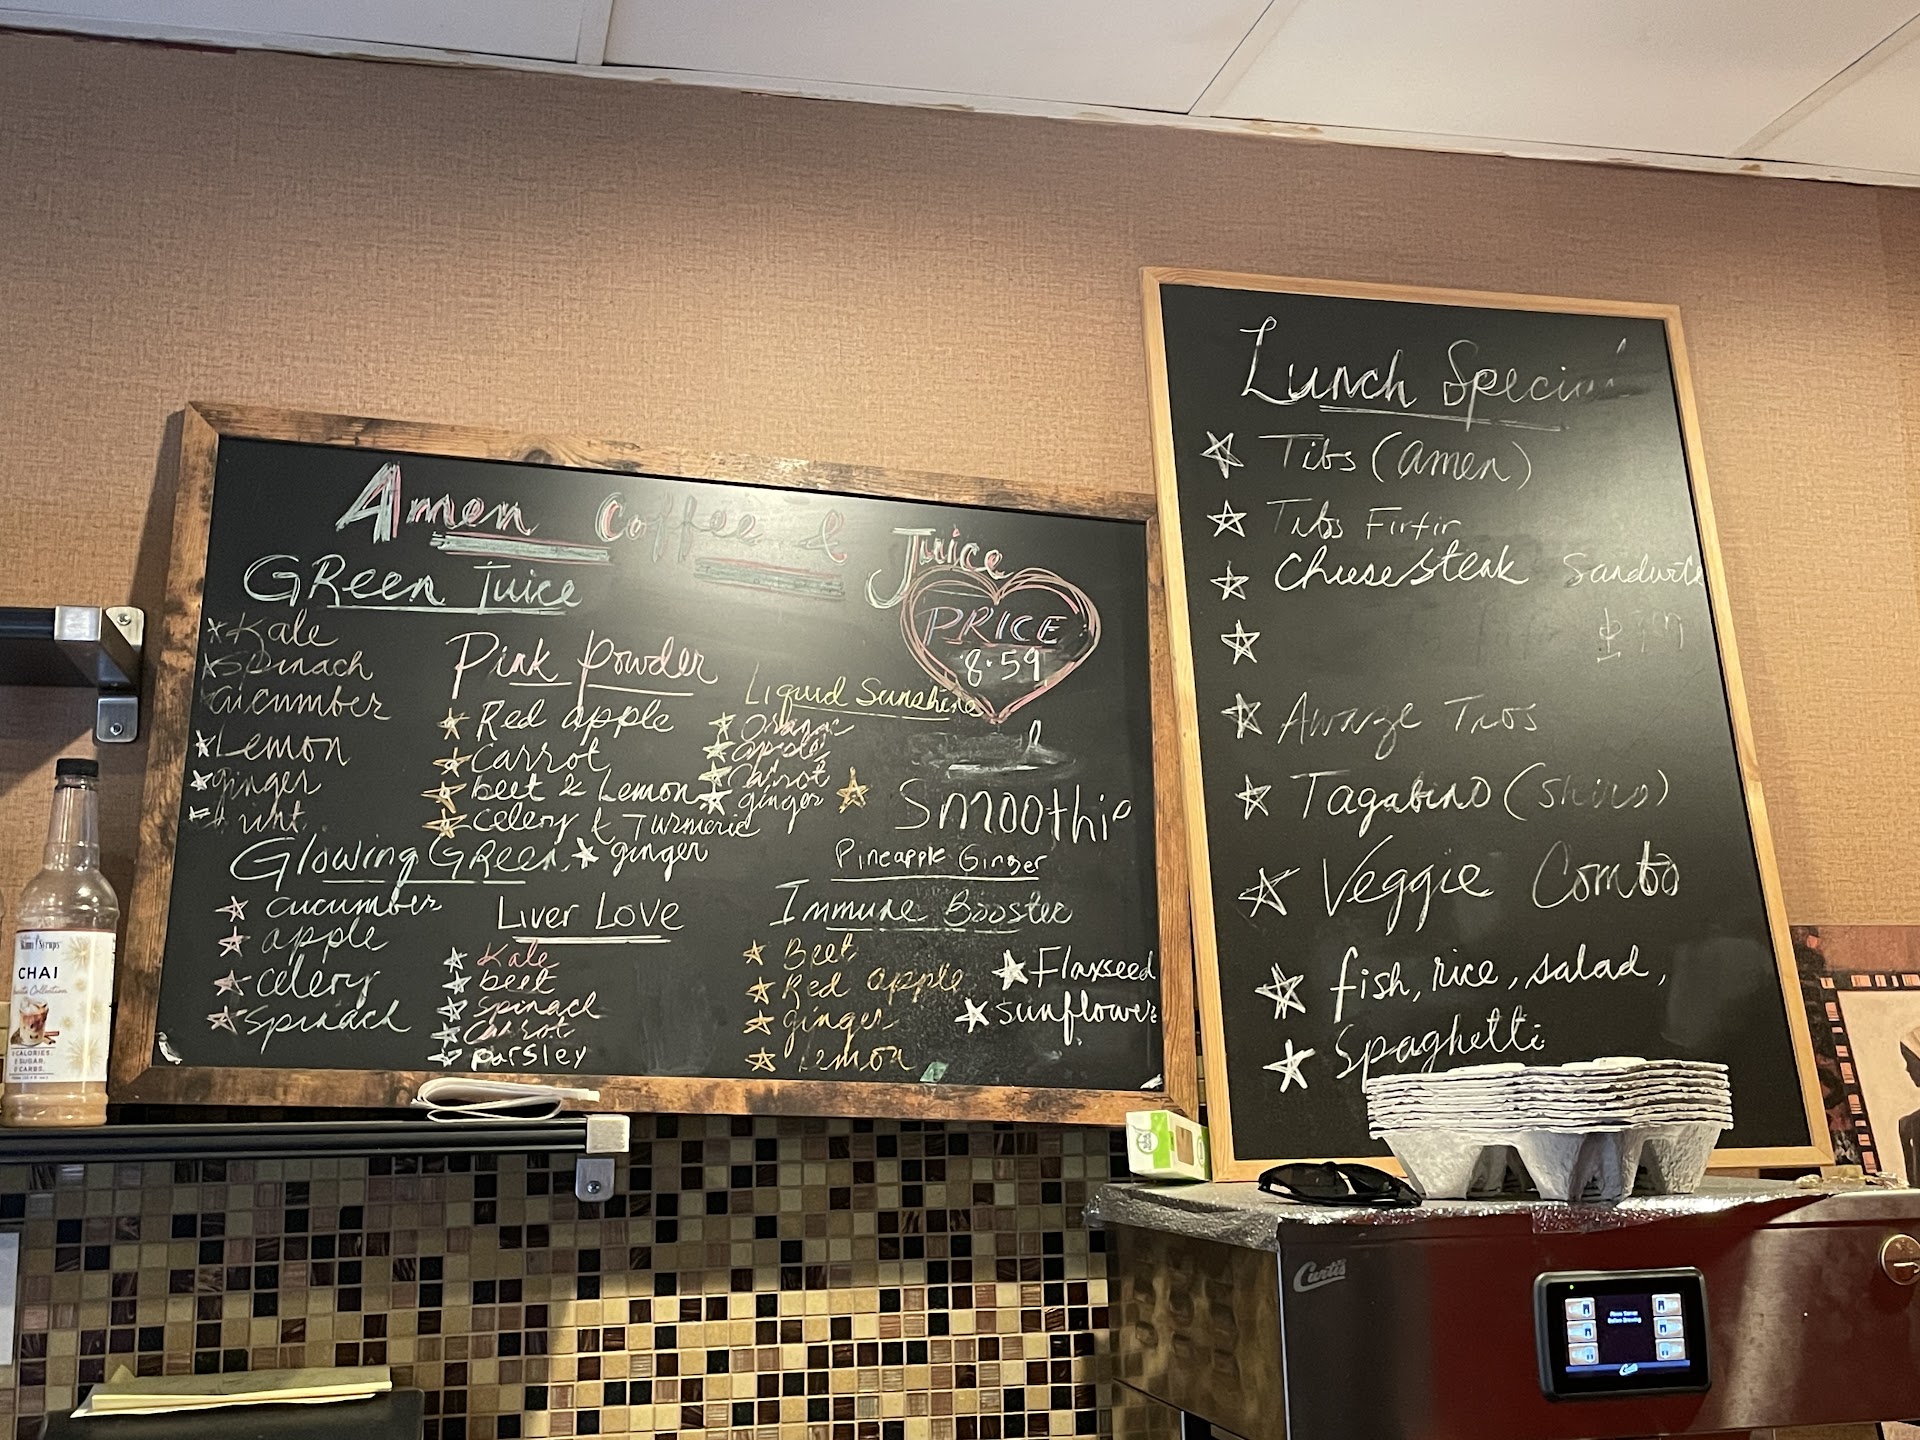 Amen Coffee & Juice
PRICE
8.59
GReen Juice
Kale
Spinach
cucumber
Lemon
ginger
Pink Powder
Red apple
Carrot
beet & Lemon
celery & Turmeric
ginger
Liquid Sunshine
Orange
apple
Carrot
ginger
Smoothie
Pineapple Ginger
Glowing GReen
cucumber
apple
celery
Spinach
Liver Love
Kale
beet
spinach
Carrot
parsley
Immune Booster
Beet
Red apple
ginger
Lemon
Flaxseed
sunflower
Lunch Special
Tibs (amen)
Tibs Firfir
Cheesesteak Sandwich
Awaze Tibs
Tagabino (Shiro)
Veggie Combo
fish, rice, salad,
Spaghetti
CHAI
0 CALORIES.
0 SUGAR.
0 CARBS.
Curtis